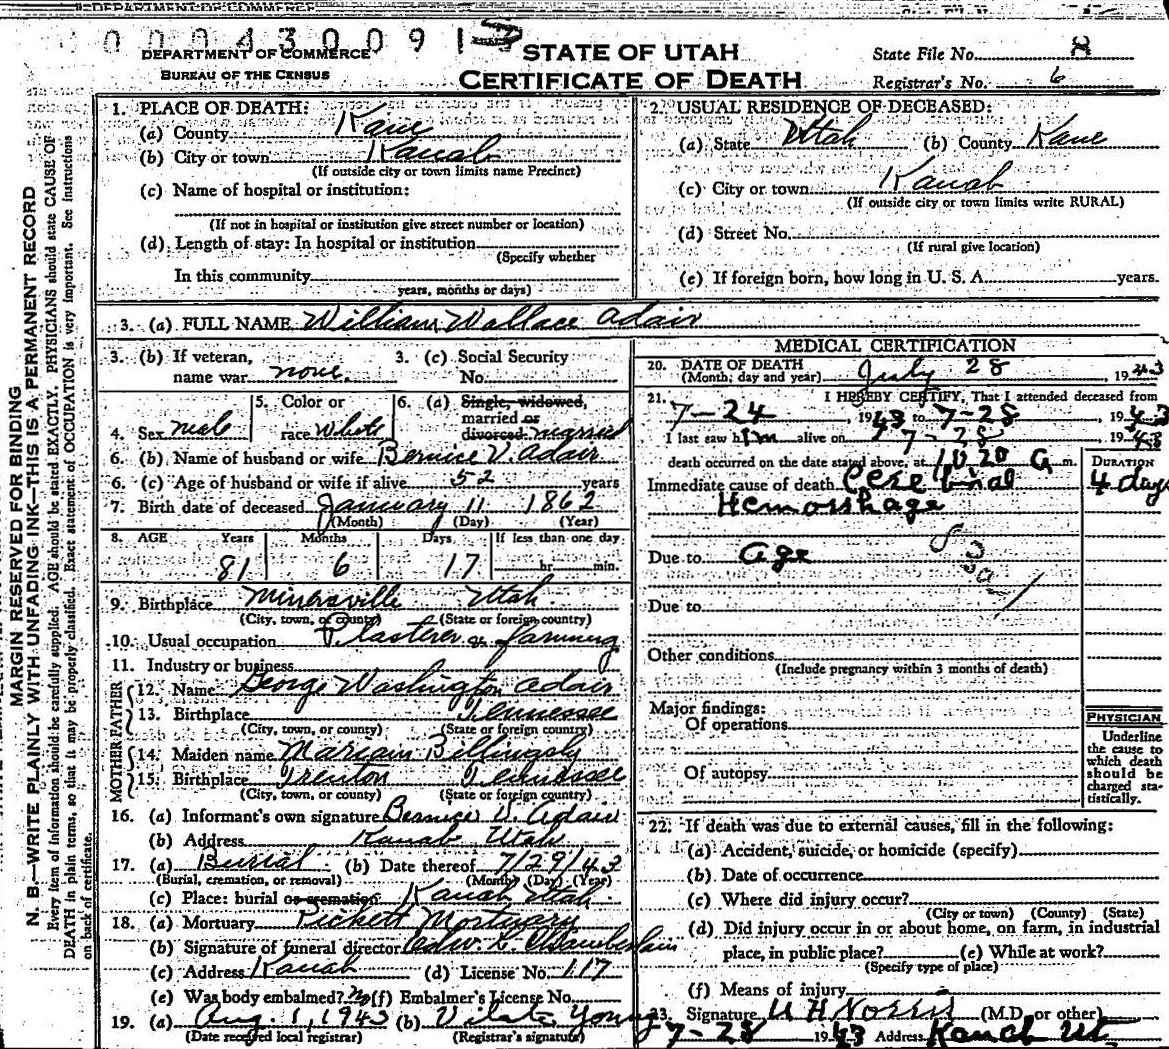 DEPARTMENT OF COMMERCE
0 0 0 4 3 0 0 9 1
DEPARTMENT OF COMMERCE
BUREAU OF THE CENSUS
STATE OF UTAH
CERTIFICATE OF DEATH
State File No. 8
Registrar's No. 6
MARGIN RESERVED FOR BINDING
N. B.—WRITE PLAINLY WITH UNFADING INK—THIS IS A PERMANENT RECORD
Every item of information should be carefully supplied. AGE should be stated EXACTLY. PHYSICIANS should state CAUSE OF
DEATH in plain terms, so that it may be properly classified. Exact statement of OCCUPATION is very important. See instructions
on back of certificate.
1. PLACE OF DEATH:
(a) County Kane
(b) City or town Kanab
(If outside city or town limits name Precinct)
(c) Name of hospital or institution:
(If not in hospital or institution give street number or location)
(d) Length of stay: In hospital or institution
(Specify whether
In this community
years, months or days)
2. USUAL RESIDENCE OF DECEASED:
(a) State Utah (b) County Kane
(c) City or town Kanab
(If outside city or town limits write RURAL)
(d) Street No.
(If rural give location)
(e) If foreign born, how long in U. S. A. years.
3. (a) FULL NAME William Wallace Adair
3. (b) If veteran, name war none.
3. (c) Social Security No.
4. Sex male
5. Color or race White
6. (a) Single, widowed, married or divorced married
6. (b) Name of husband or wife Bernice V. Adair
6. (c) Age of husband or wife if alive 52 years
7. Birth date of deceased January 11 1862
(Month) (Day) (Year)
8. AGE Years Months Days If less than one day
81 6 17 hr. min.
9. Birthplace Minersville Utah
(City, town, or county) (State or foreign country)
10. Usual occupation Plasterer & farming
11. Industry or business
FATHER
12. Name George Washington Adair
13. Birthplace Tennessee
(City, town, or county) (State or foreign country)
MOTHER
14. Maiden name Mariam Billingsly
15. Birthplace Trenton Tennessee
(City, town, or county) (State or foreign country)
16. (a) Informant's own signature Bernice V. Adair
(b) Address Kanab Utah
17. (a) Burial (b) Date thereof 7/29/43
(Burial, cremation, or removal) (Month) (Day) (Year)
(c) Place: burial or cremation Kanab Utah.
18. (a) Mortuary Pickett Mortuary
(b) Signature of funeral director Chamberlain
(c) Address Kanab (d) License No. 117
(e) Was body embalmed? no (f) Embalmer's License No.
19. (a) Aug. 1, 1943 (b) Vilate Young
(Date received local registrar) (Registrar's signature)
MEDICAL CERTIFICATION
20. DATE OF DEATH July 28, 1943
(Month, day and year)
21. I HEREBY CERTIFY, That I attended deceased from
7-24, 1943 to 7-28 1943
I last saw him alive on 7-28 1943
death occurred on the date stated above, at 10:20 a m.
DURATION
Immediate cause of death Cerebral 4 days
Hemorrhage
Due to Age
Due to
Other conditions
(Include pregnancy within 3 months of death)
Major findings:
Of operations
Of autopsy
PHYSICIAN
Underline
the cause to
which death
should be
charged sta-
tistically.
22. If death was due to external causes, fill in the following:
(a) Accident, suicide, or homicide (specify)
(b) Date of occurrence
(c) Where did injury occur?
(City or town) (County) (State)
(d) Did injury occur in or about home, on farm, in industrial
place, in public place? (e) While at work?
(Specify type of place)
(f) Means of injury
23. Signature U H Norris (M.D. or other)
7-28 1943 Address Kanab Ut.